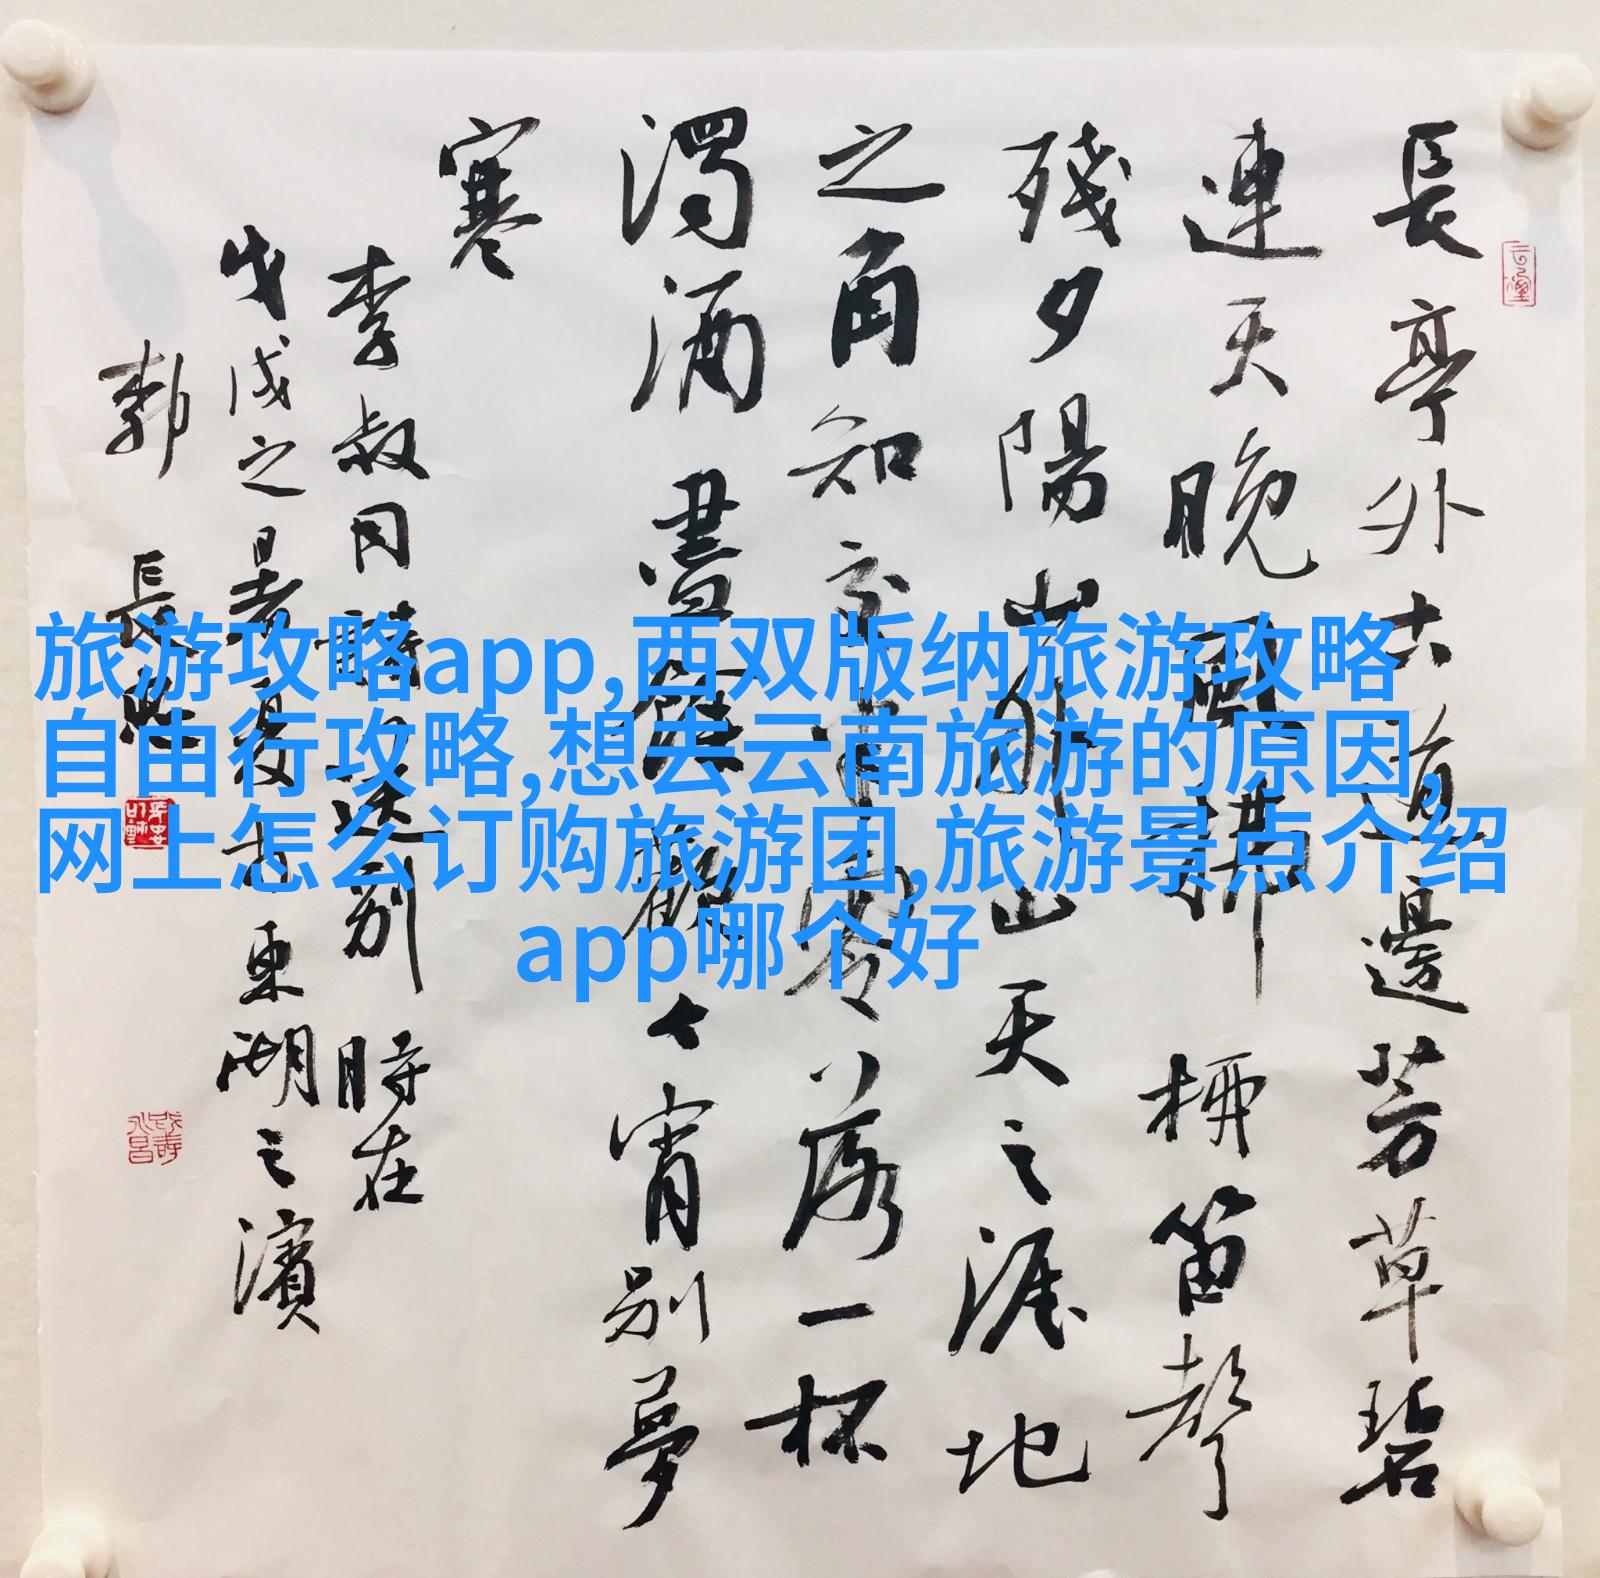 長亭外古道邊芳草碧
連天晚風拂柳笛聲
殘夕陽山外山天之涯地
之角知交半零落一杯
濁酒盡餘歡今宵別夢
寒
李叔同詩送別 時在
戊戌之暑夏于東湖之濱
郭 長
旅游攻略app,西双版纳旅游攻略
自由行攻略,想去云南旅游的原因,
网上怎么订购旅游团,旅游景点介绍
app哪个好